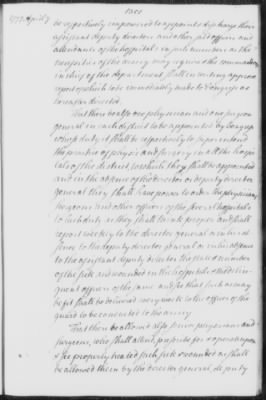 1777 April 7
be respectively impowered to appoint & discharge their
assistant deputy directors and other sub officers and
attendants of the hospitals in such number as the
necessities of the army may require the commander
in chief of the department shall in writing approve
report of which to be immediately made to Congress as
hereafter directed.
That there be also one physician and one surgeon
general in each district to be appointed by Congress
whose duty it shall be respectively to superintend
the practice of physic and surgery in all the hospi
tals of the district to which they shall be appointed
and in the absence of the director or deputy director
general they shall have power to order the physicians
surgeons and other officers of the several hospitals
to such duty as they shall think proper and shall
report weekly to the director general or in his ab
sence to the deputy director general or in his absence
to the assistant deputy director the state & number
of the sick and wounded in the hospitals & the delin
quent officers of the same and see that such as may
be fit shall be delivered every week to the officer of the
guard to be conducted to the army
That there be allowed also senior physicians and
surgeons, who shall attend, prescribe for & operate upon
& see properly treated such sick & wounded as shall
be allowed them by the director general, deputy